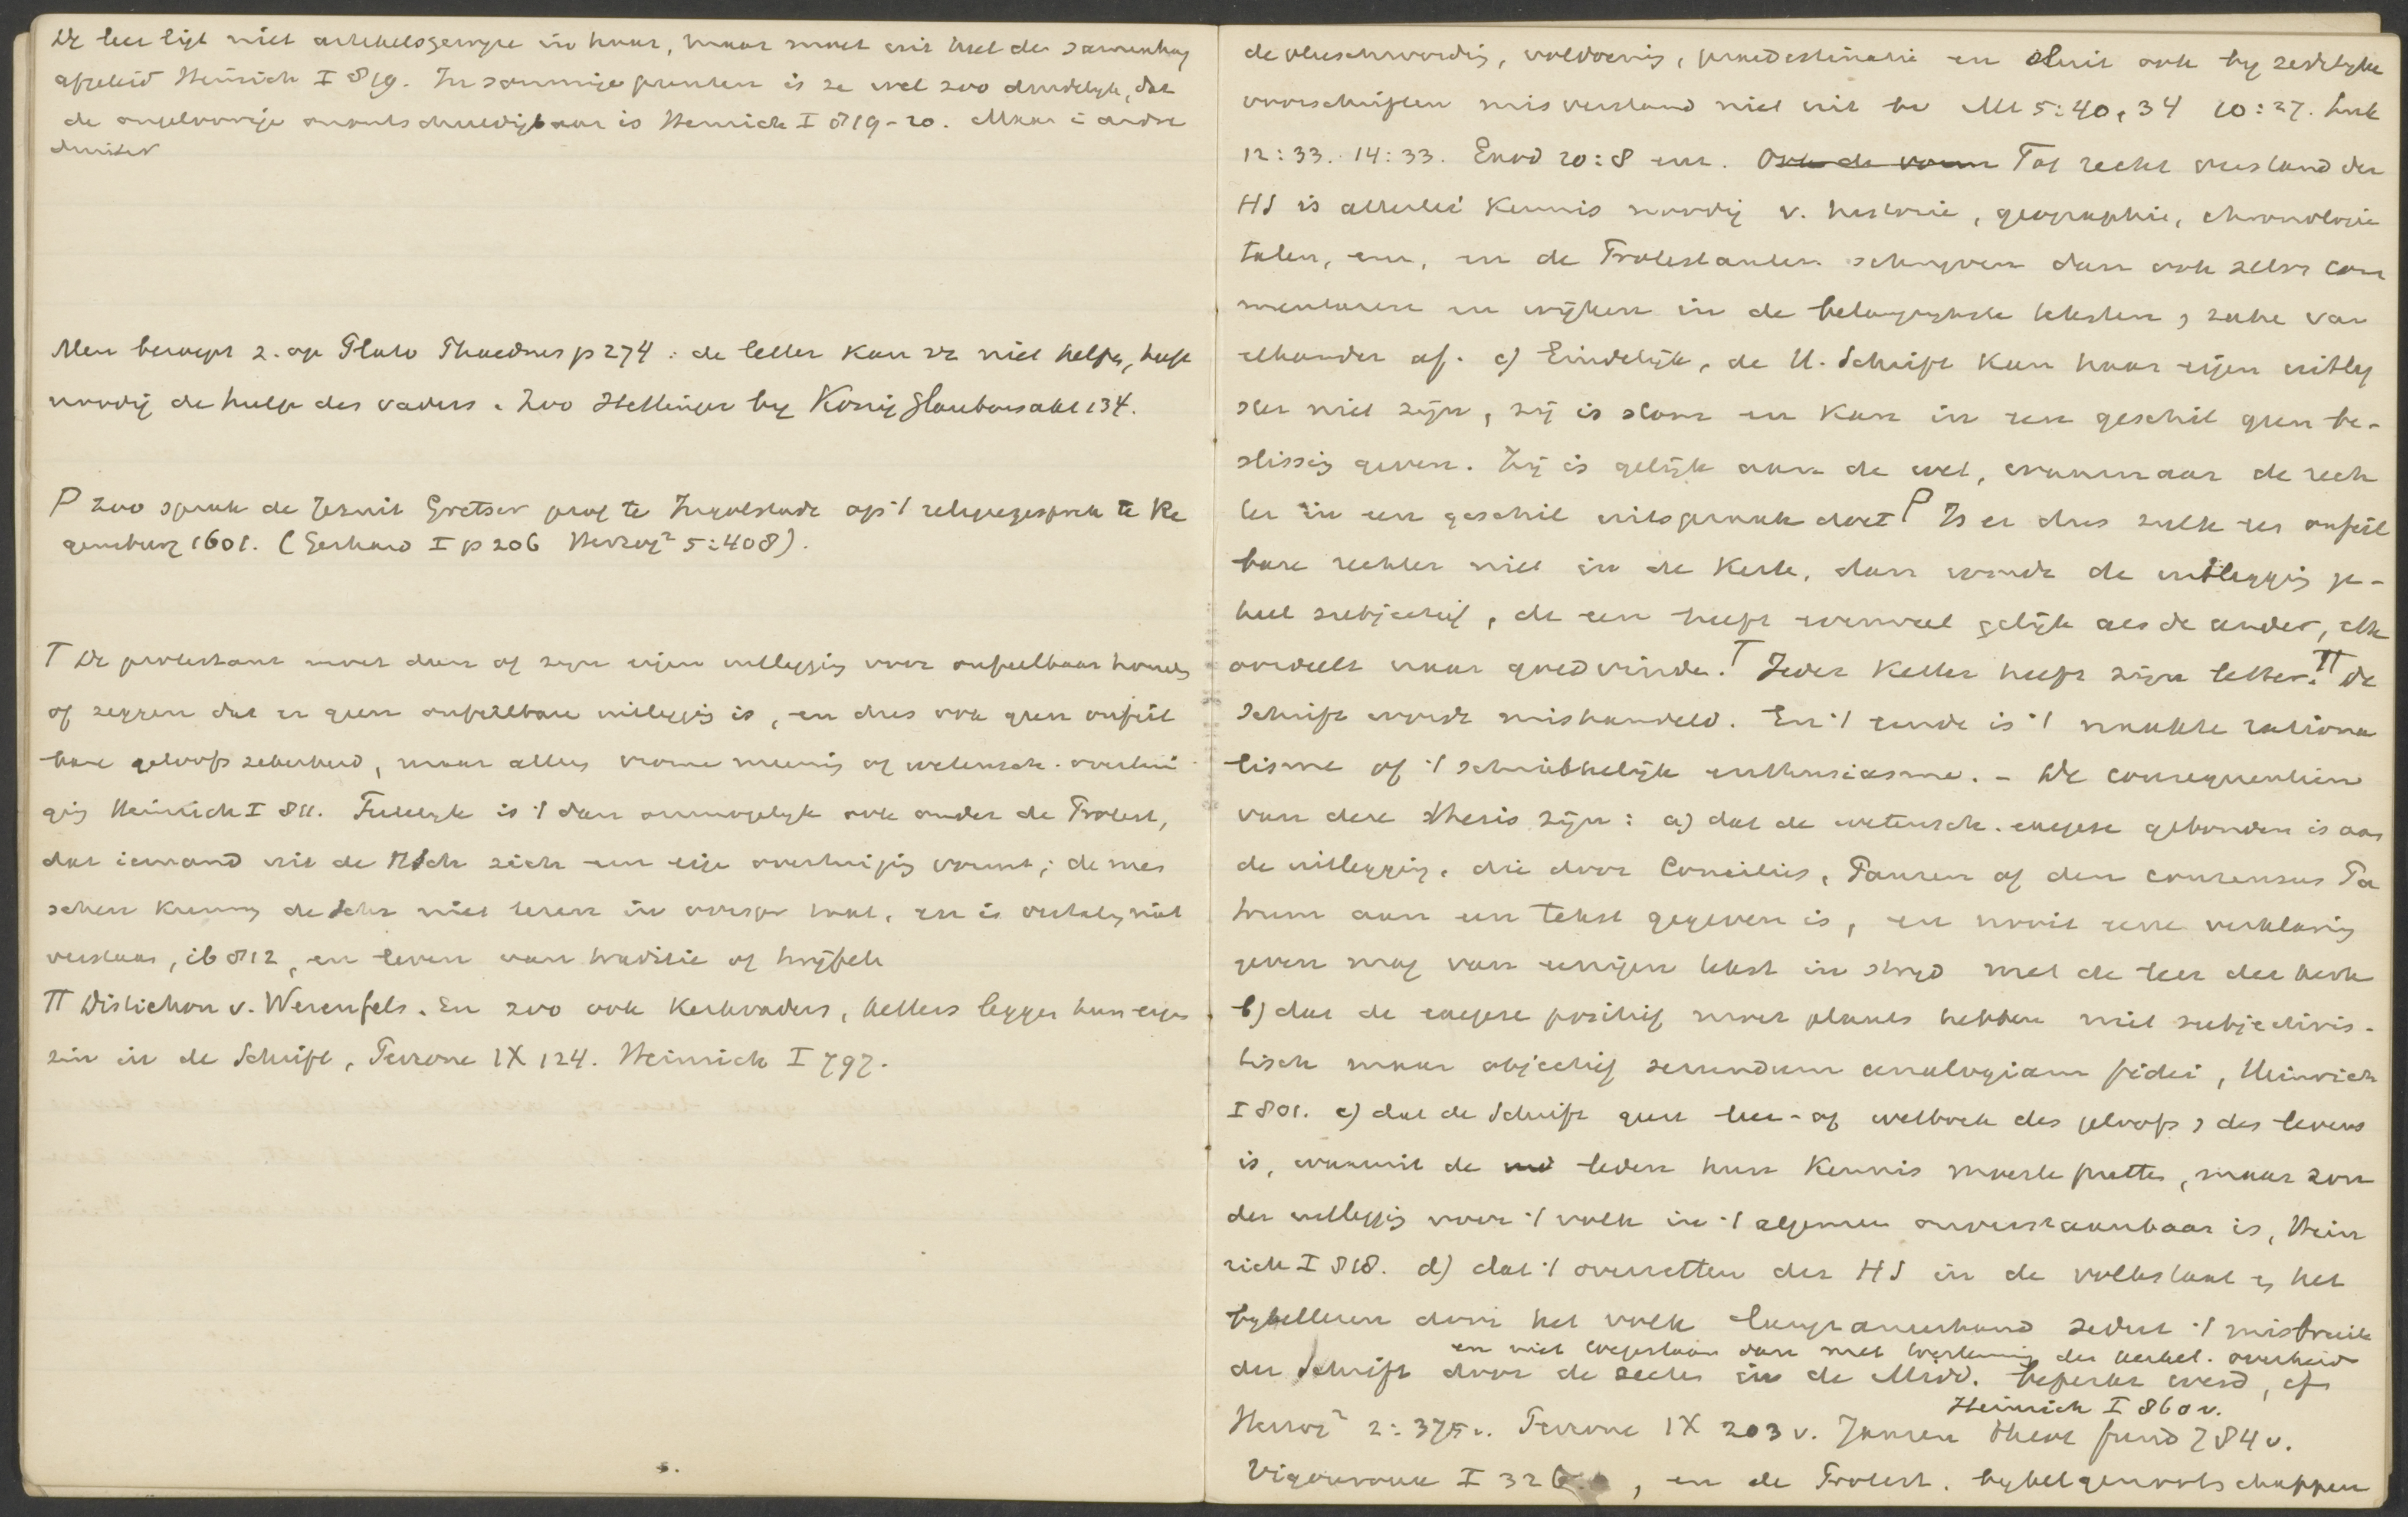 De leer ligt niet artikelsgewyze in haar, maar moet uit heel den samenhang
afgeleid Heinrich I 819. In sommige punten is ze wel zoo duidelyk, dat
de ongeloovige onverschuldigbaar is Heinrich I 819-20. Maar in andre
duister
Men beroept z. op Plato Phaedrus p 274: de letter kan zz niet helpen, heeft
noodig de hulp des vaders. Zoo Hettinger by König Glaubensakt 134.
P zoo sprak de Jezuit Gretser prof te Ingolstadt op 't religiegesprek te Re
gensburg 1601. (Gerhard I p 206 Herzog² 5:408).
T De protestant moet dan of zyn eigen uitlegging voor onfeilbaar houden
of zeggen dat er geen onfeilbare uitlegging is, en dus ook geen onfeil
bare geloofszekerheid, maar alles vrome meening of wetensch. overtui
ging Heinrich I 811. Feitelyk is 't dan onmogelyk ook onder de Protest,
dat iemand uit de HSch zich een eige overtuiging vormt; de mee
schen kunnen de Schr niet lezen in oorspr taal, en is vertaling niet
verstaan, ib 812, en leven van traditie of twijfele
TT Distichon v. Werenfels. En zoo ook Kerkvaders, ketters leggen hun eigen
zin in de Schrift, Perrone IX 124. Heinrich I 797.
5.
de vleeschwording, voldoening, praedestinatie en sluit ook by zedelyke
voorschriften misverstand niet uit bv Mt 5:40, 34 10:27. Luk
12:33. 14:33. Exod 20:8 enz. Ook de vorm Tot recht verstand der
HS is allerlei kennis noodig v. historie, geographie, chronologie
talen, enz, en de Protestanten schryven dan ook zelve com
mentaren en wijken in de belangrykste teksten, zake van
elkander af. c) Eindelijk, de H. Schrift kan haar eigen uitleg
ster niet zijn, zij is stom en kan in een geschil geen be-
slissing geven. Zij is gelijk aan de wet, waarnaar de rech
ter in een geschil uitspraak doet P Is er dus zulk een onfeil
bare rechter niet in de kerk, dan wordt de uitlegging ge-
heel subjectief, de een heeft evenveel gelijk als de ander, elk
oordeelt naar goedvinden. T Ieder Ketter heeft zijn letter. TT De
Schrift wordt mishandeld. En 't einde is 't naakte rationa
lisme of 't schrikkelijk enthusiasme. - De consequentien
van deze thesis zijn: a) dat de wetensch. exegese gebonden is aan
de uitlegging, die door Conciliis, Pausen of den consensus Pa
trum aan een tekst gegeven is, en nooit eene verklaring
geven mag van eenigen tekst in strijd met de leer der kerk
b) dat de exegese positief moet plaats hebben niet subjectivis-
tisch maar objectief secundum analogiam fidei, Heinrich
I 801. c) dat de Schrift geen leer- of wetboek des geloofs, des levens
is, waaruit de leden hun kennis moeste putten, maar zon
der uitlegging voor 't volk in 't algemeen onverstaanbaar is, Hein
rich I 818. d) dat 't overzetten der HS in de volkstaal en het
bybellezen door het volk langzamerhand sedert 't misbruik
en niet toegestaan dan met toestemming der kerkel. overheid
der Schrift door de secten in de Midd. beperkt werd, cf
Heinrich I 860 v.
Herzog² 2:375v. Perrone IX 203 v. Jansen theol fund 784 v.
Vigouroux I 326, en de Protest. bybelgenootschappen